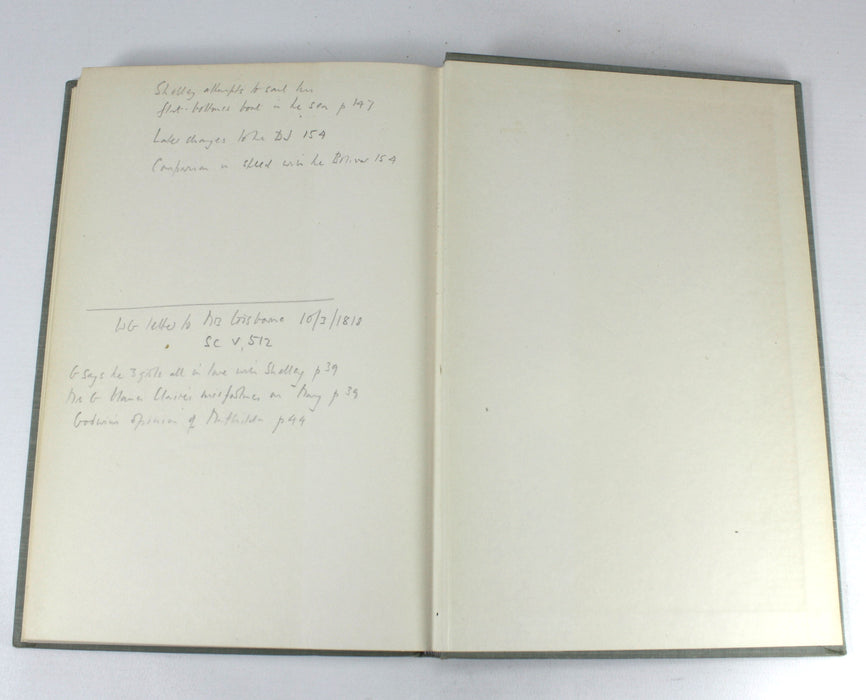 Shelley attempts to sail his
flat-bottomed boat in the sea p 147
Later changes to the DJ 154
Comparison in speed with the Bolivar 154
WG letter to Mrs Gisborne 10/3/1818
SC V, 512
G says the 3 girls all in love with Shelley p 39
Mrs G blames Claire's misfortunes on Mary p 39
Godwin's opinion of Mathilda p 44